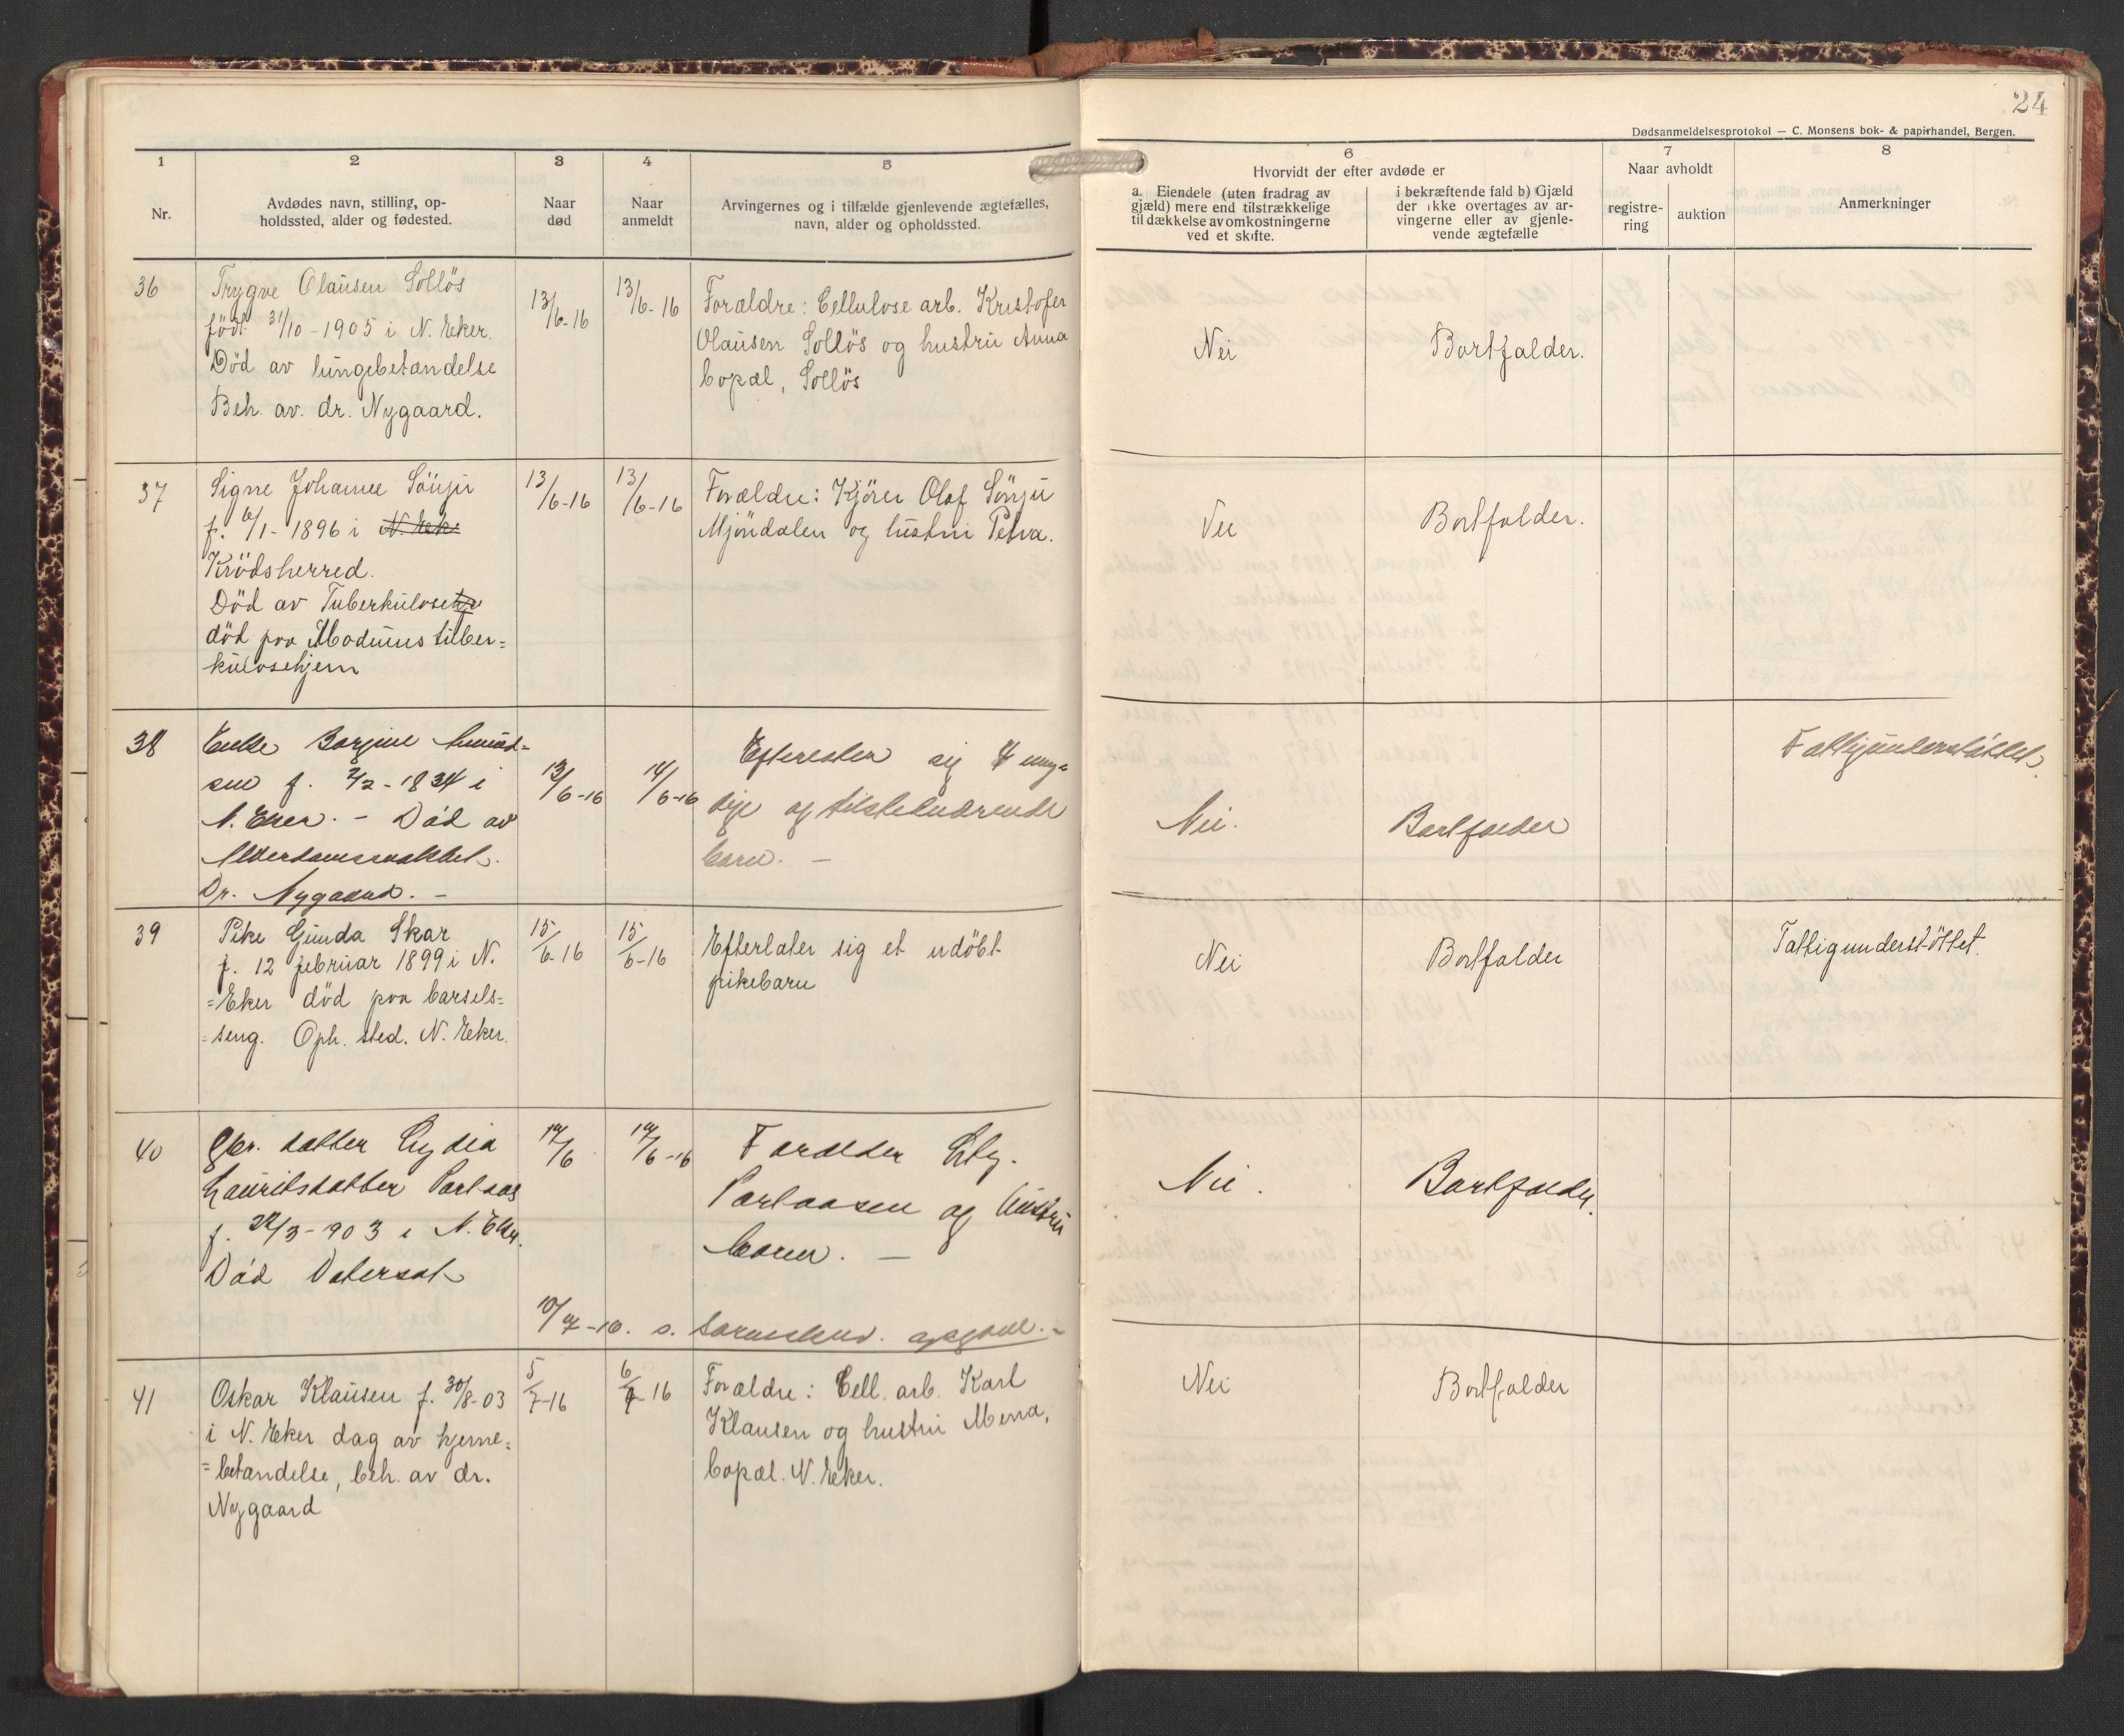 24
Dødsanmeldelsesprotokol — C. Monsens bok- & papirhandel, Bergen.
1
2
3
4
5
6
7
8
Nr.
Avdødes navn, stilling, op-
holdssted, alder og fødested.
Naar
død
Naar
anmeldt
Arvingernes og i tilfælde gjenlevende ægtefælles,
navn, alder og opholdssted.
Hvorvidt der efter avdøde er
a. Eiendele (uten fradrag av
gjæld) mere end tilstrækkelige
til dækkelse av omkostningerne
ved et skifte.
i bekræftende fald b) Gjæld
der ikke overtages av ar-
vingerne eller av gjenle-
vende ægtefælle
Naar avholdt
registre-
ring
auktion
Anmerkninger
36
Trygve Olausen Solløs
født 31/10-1905 i N. Eker.
Død av lungebetændelse
Beh. av. dr. Nygaard.
13/6-16
13/6-16
Forældre: Cellulose arb. Kristofer
Olausen Solløs og hustru Anna
bopæl, Solløs
Nei
Bortfalder.
37
Signe Johanne
f. 6/1-1896 i N. Eke
Krødsherred.
Død av Tuberkulose
død paa Modums tuber=
kulosehjem
13/6-16
13/6-16
Forældre: Kjører Olaf
Mjøndalen og hustru Petra.
Nei
Bortfalder.
38
Enke
sen f. 2/2-1834 i
N. Eker. - Død av
Alderdomssvakhet.
Dr. Nygaard. -
13/6-16
14/6-16
Efterlater sig 4 myn=
dige og tilstedeværende
barn. -
Nei.
Bortfalder
Fattigunderstøttet.
39
Pike Gunda Skar
f. 12 februar 1899 i N.
=Eker død paa barsels=
=seng. Oph. sted. N. Eker.
15/6-16
15/6-16
Efterlater sig et udøbt
pikebarn
Nei
Bortfalder
Fattigunderstøttet.
40
datter Lydia
Lauritsdatter
f. 22/3-903 i N. Eker.
Død
Forælder
og hustru
Nei.
Bortfalder.
41
Oskar Klausen f. 30/8-03
i N. Eker dag av hjerne=
=betændelse, beh. av dr.
Nygaard
5/7-16
6/7-16
Forældre: Cell. arb. Karl
Klausen og hustru Mena,
bopæl. N. Eker.
Nei
Bortfalder